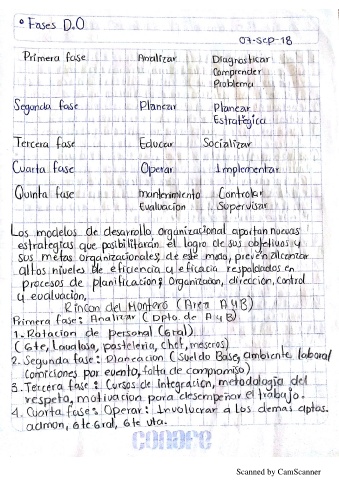 ° Fases D.O
07-sep-18
Primera fase Analizar Diagnosticar
Comprender
Problema
Segunda fase Planear Planear
Estratégica
Tercera fase Educar Socializar
Cuarta fase Operar Implementar
Quinta fase mantenimiento Controlar
Evaluación Supervisar
Los modelos de desarrollo organizacional aportan nuevas
estrategias que posibilitarán el logro de sus objetivos y
sus metas organizacionales de este modo, prevén alcanzar
altos niveles de eficiencia y eficacia respaldados en
procesos de planificación; Organización, dirección, Control
y evaluación,
Rincon del Montero (Area AyB)
Primera fase: Analizar (Dpto de AyB)
1. Rotacion de personal (Gral)
(Gte, Lavalosa, pasteleria, chef, meseros)
2. Segunda fase: Planeacion (Sueldo Base, ambiente laboral
Comiciones por evento, falta de compromiso)
3. Tercera fase: Cursos de Integracion, metodología del
respeto, motivacion para desempeñar el trabajo.
4. Cuarta fase: Operar: Involucrar a los demas dptos.
admon, Gte Gral, Gte vta.
conafe
Scanned by CamScanner